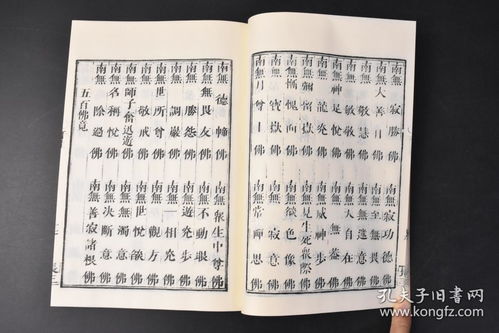 南無寂勝佛 南無寂功德佛
南無大善日佛 南無至無畏佛
南無敬慧佛 南無無進意佛
南無敬敬佛 南無大自在佛
南無神足悅佛 南無無蓋佛
南無龍光佛 南無威神步佛
南無彌留嶽佛 南無見生死衆際佛
南無慚愧面佛 南無欲色像佛
南無寂意佛
南無月尊上佛 南無常神思佛
南無德幢佛 南無衆生中尊佛
南無無畏友佛 南無不動眼佛
南無勝怨佛 南無遊光步佛
南無調巖佛 南無一相光佛
南無世所尊佛 南無觀方佛
南無敬戒佛 南無世悅歡佛
南無師子奮迅遊佛 南無無濁意佛
南無名稱悅佛 南無決斷意佛
南無除過佛 南無善寂諸根佛
五百佛竟
孔夫子旧书网
www.kongfz.com